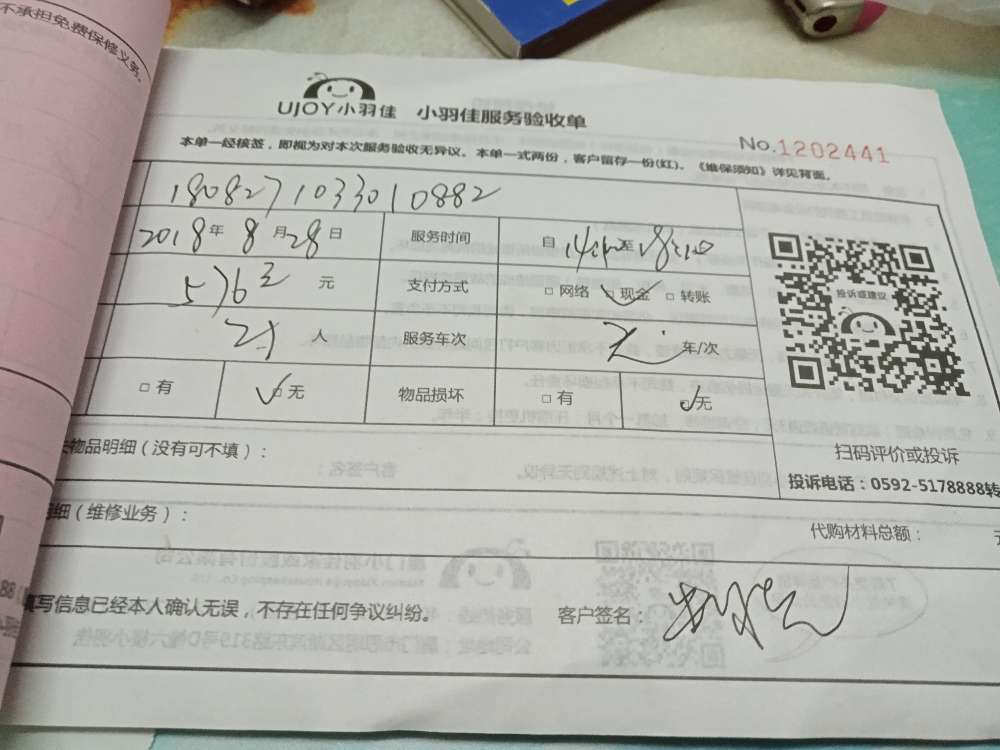 不承担免费保修义务。
UJOY小羽佳 小羽佳服务验收单
No.1202441
本单一经核签，即视为对本次服务验收无异议。本单一式两份，客户留存一份(红)。《维保须知》详见背面。
1808271033010882
2018年8月28日 服务时间 自 至
元 支付方式 □网络 ☑现金 □转账
人 服务车次 无 年/次
□有 ☑无 物品损坏 □有 ☑无
投诉或建议
扫码评价或投诉
投诉电话：0592-5178888转
物品明细（没有可不填）：
细（维修业务）： 代购材料总额：
填写信息已经本人确认无误，不存在任何争议纠纷。 客户签名：